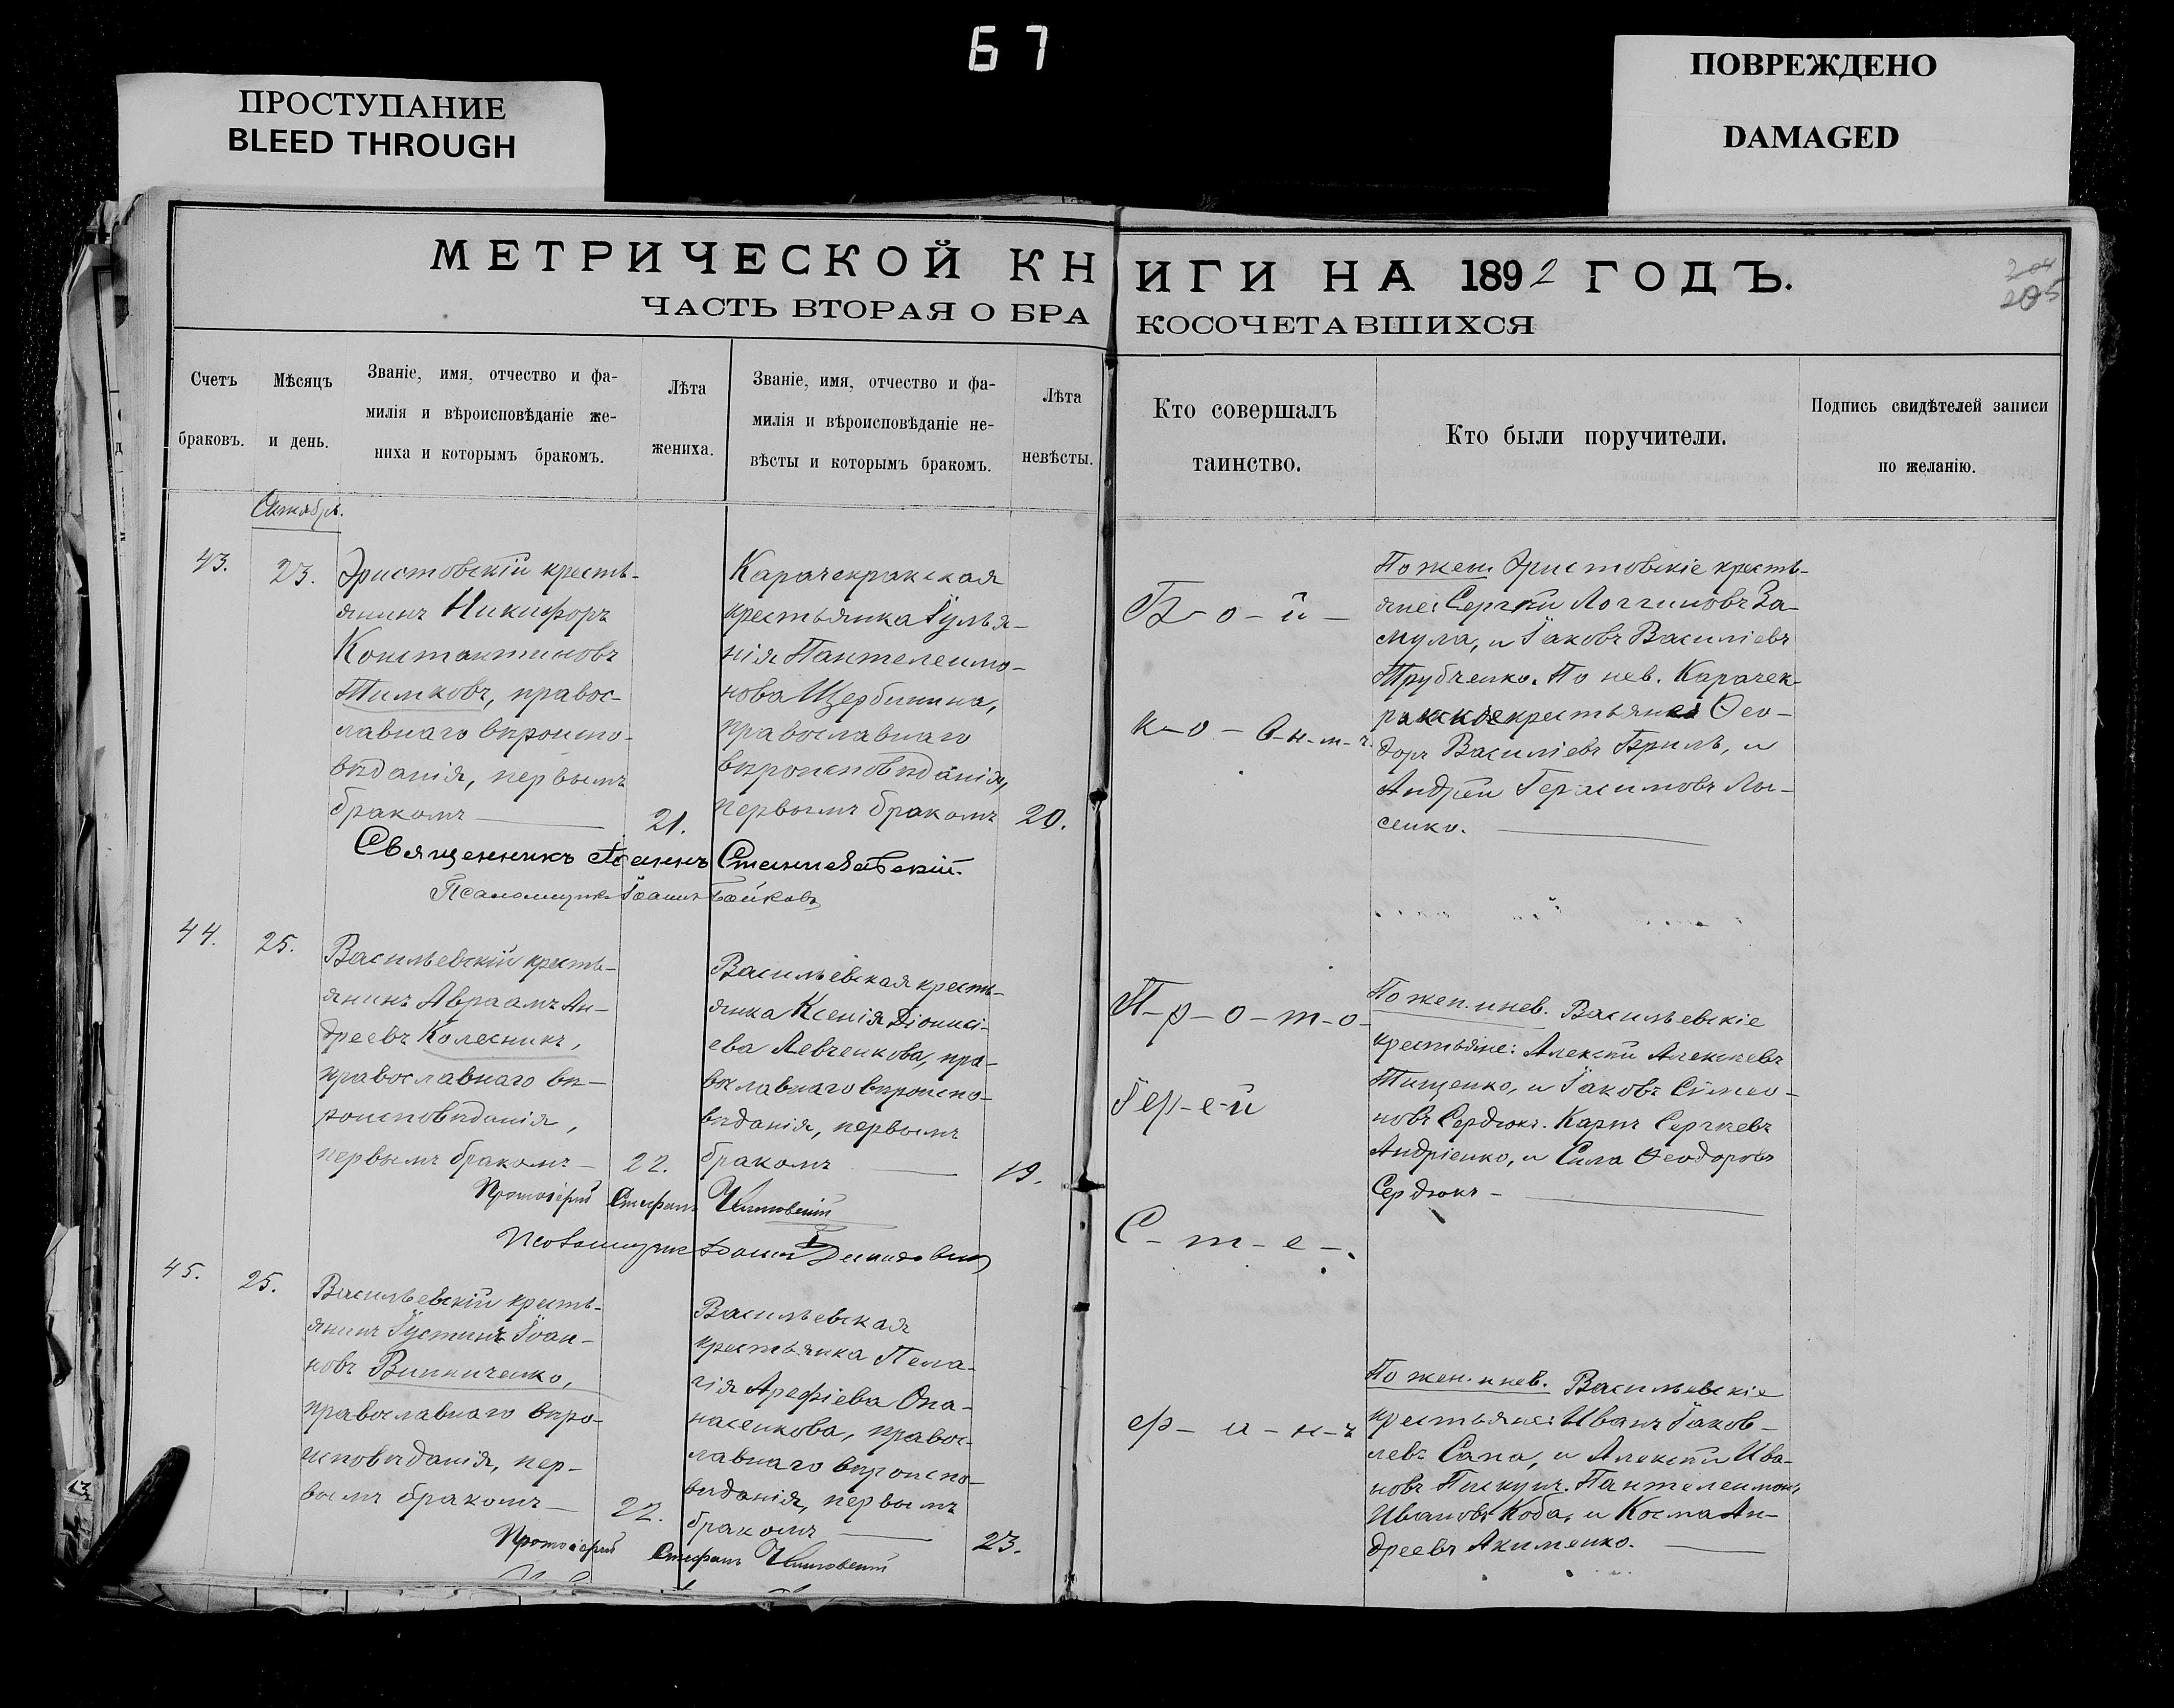 67
ПРОСТУПАНИЕ
BLEED THROUGH
ПОВРЕЖДЕНО
DAMAGED
МЕТРИЧЕСКОЙ КНИГИ НА 1892 ГОДЪ.
ЧАСТЬ ВТОРАЯ О БРАКОСОЧЕТАВШИХСЯ
205
Счетъ
браковъ.
Мѣсяцъ
и день.
Званіе, имя, отчество и фа-
милія и вѣроисповѣданіе же-
ниха и которымъ бракомъ.
Лѣта
жениха.
Званіе, имя, отчество и фа-
милія и вѣроисповѣданіе не-
вѣсты и которымъ бракомъ.
Лѣта
невѣсты.
Кто совершалъ
таинство.
Кто были поручители.
Подпись свидѣтелей записи
по желанію.
Октябрь.
43.
23.
Эристовскій кресть-
янинъ Никифоръ
Константиновъ
Тимковъ, правос-
лавнаго вѣроиспо-
вѣданія, первымъ
бракомъ
21.
Карачекракская
крестьянка Іулья-
нія Пантелеимо-
нова Щербинина,
православнаго
вѣроисповѣданія,
первымъ бракомъ
20.
Священникъ Іоаннъ Станиславскій.
Псаломщикъ Іоаннъ Бойковъ
По жен. Эристовскіе кресть-
яне: Сергѣй Логгиновъ За-
мула, и Іаковъ Василіевъ
Трубченко. По нев. Карачек-
ракскіе крестьяне: Ѳео-
доръ Василіевъ Бриль, и
Андрей Герасимовъ Лы-
сенко.
44.
25.
Васильевскій кресть-
янинъ Авраамъ Ан-
дреевъ Колесникъ,
православнаго вѣ-
роисповѣданія,
первымъ бракомъ
22.
Васильевская кресть-
янка Ксенія Діонисі-
ева Левченкова, пра-
вославнаго вѣроиспо-
вѣданія, первымъ
бракомъ
19.
Протоіерей Стефанъ
Псаломщикъ Іоаннъ
По жен. и нев. Васильевскіе
крестьяне: Алексѣй Алексѣевъ
Тищенко, и Іаковъ Симео-
новъ Сердюкъ. Карпъ Сергѣевъ
Андріенко, и Сила Ѳеодоровъ
Сердюкъ
45.
25.
Васильевскій кресть-
янинъ Іустинъ Іоан-
новъ Винниченко,
православнаго вѣро-
исповѣданія, пер-
вымъ бракомъ
22.
Васильевская
крестьянка Пела-
гія Арефіева Опа-
насенкова, правос-
лавнаго вѣроиспо-
вѣданія, первымъ
бракомъ
23.
Протоіерей Стефанъ
По жен. и нев. Васильевскіе
крестьяне: Иванъ Іаков-
левъ Сапа, и Алексѣй Ива-
новъ Пискунъ. Пантелеимонъ
Ивановъ Коба, и Косма Ан-
дреевъ Акименко.
П-р-о-т-о-
Іер-е-й
С-т-е-
ф-а-н-ъ